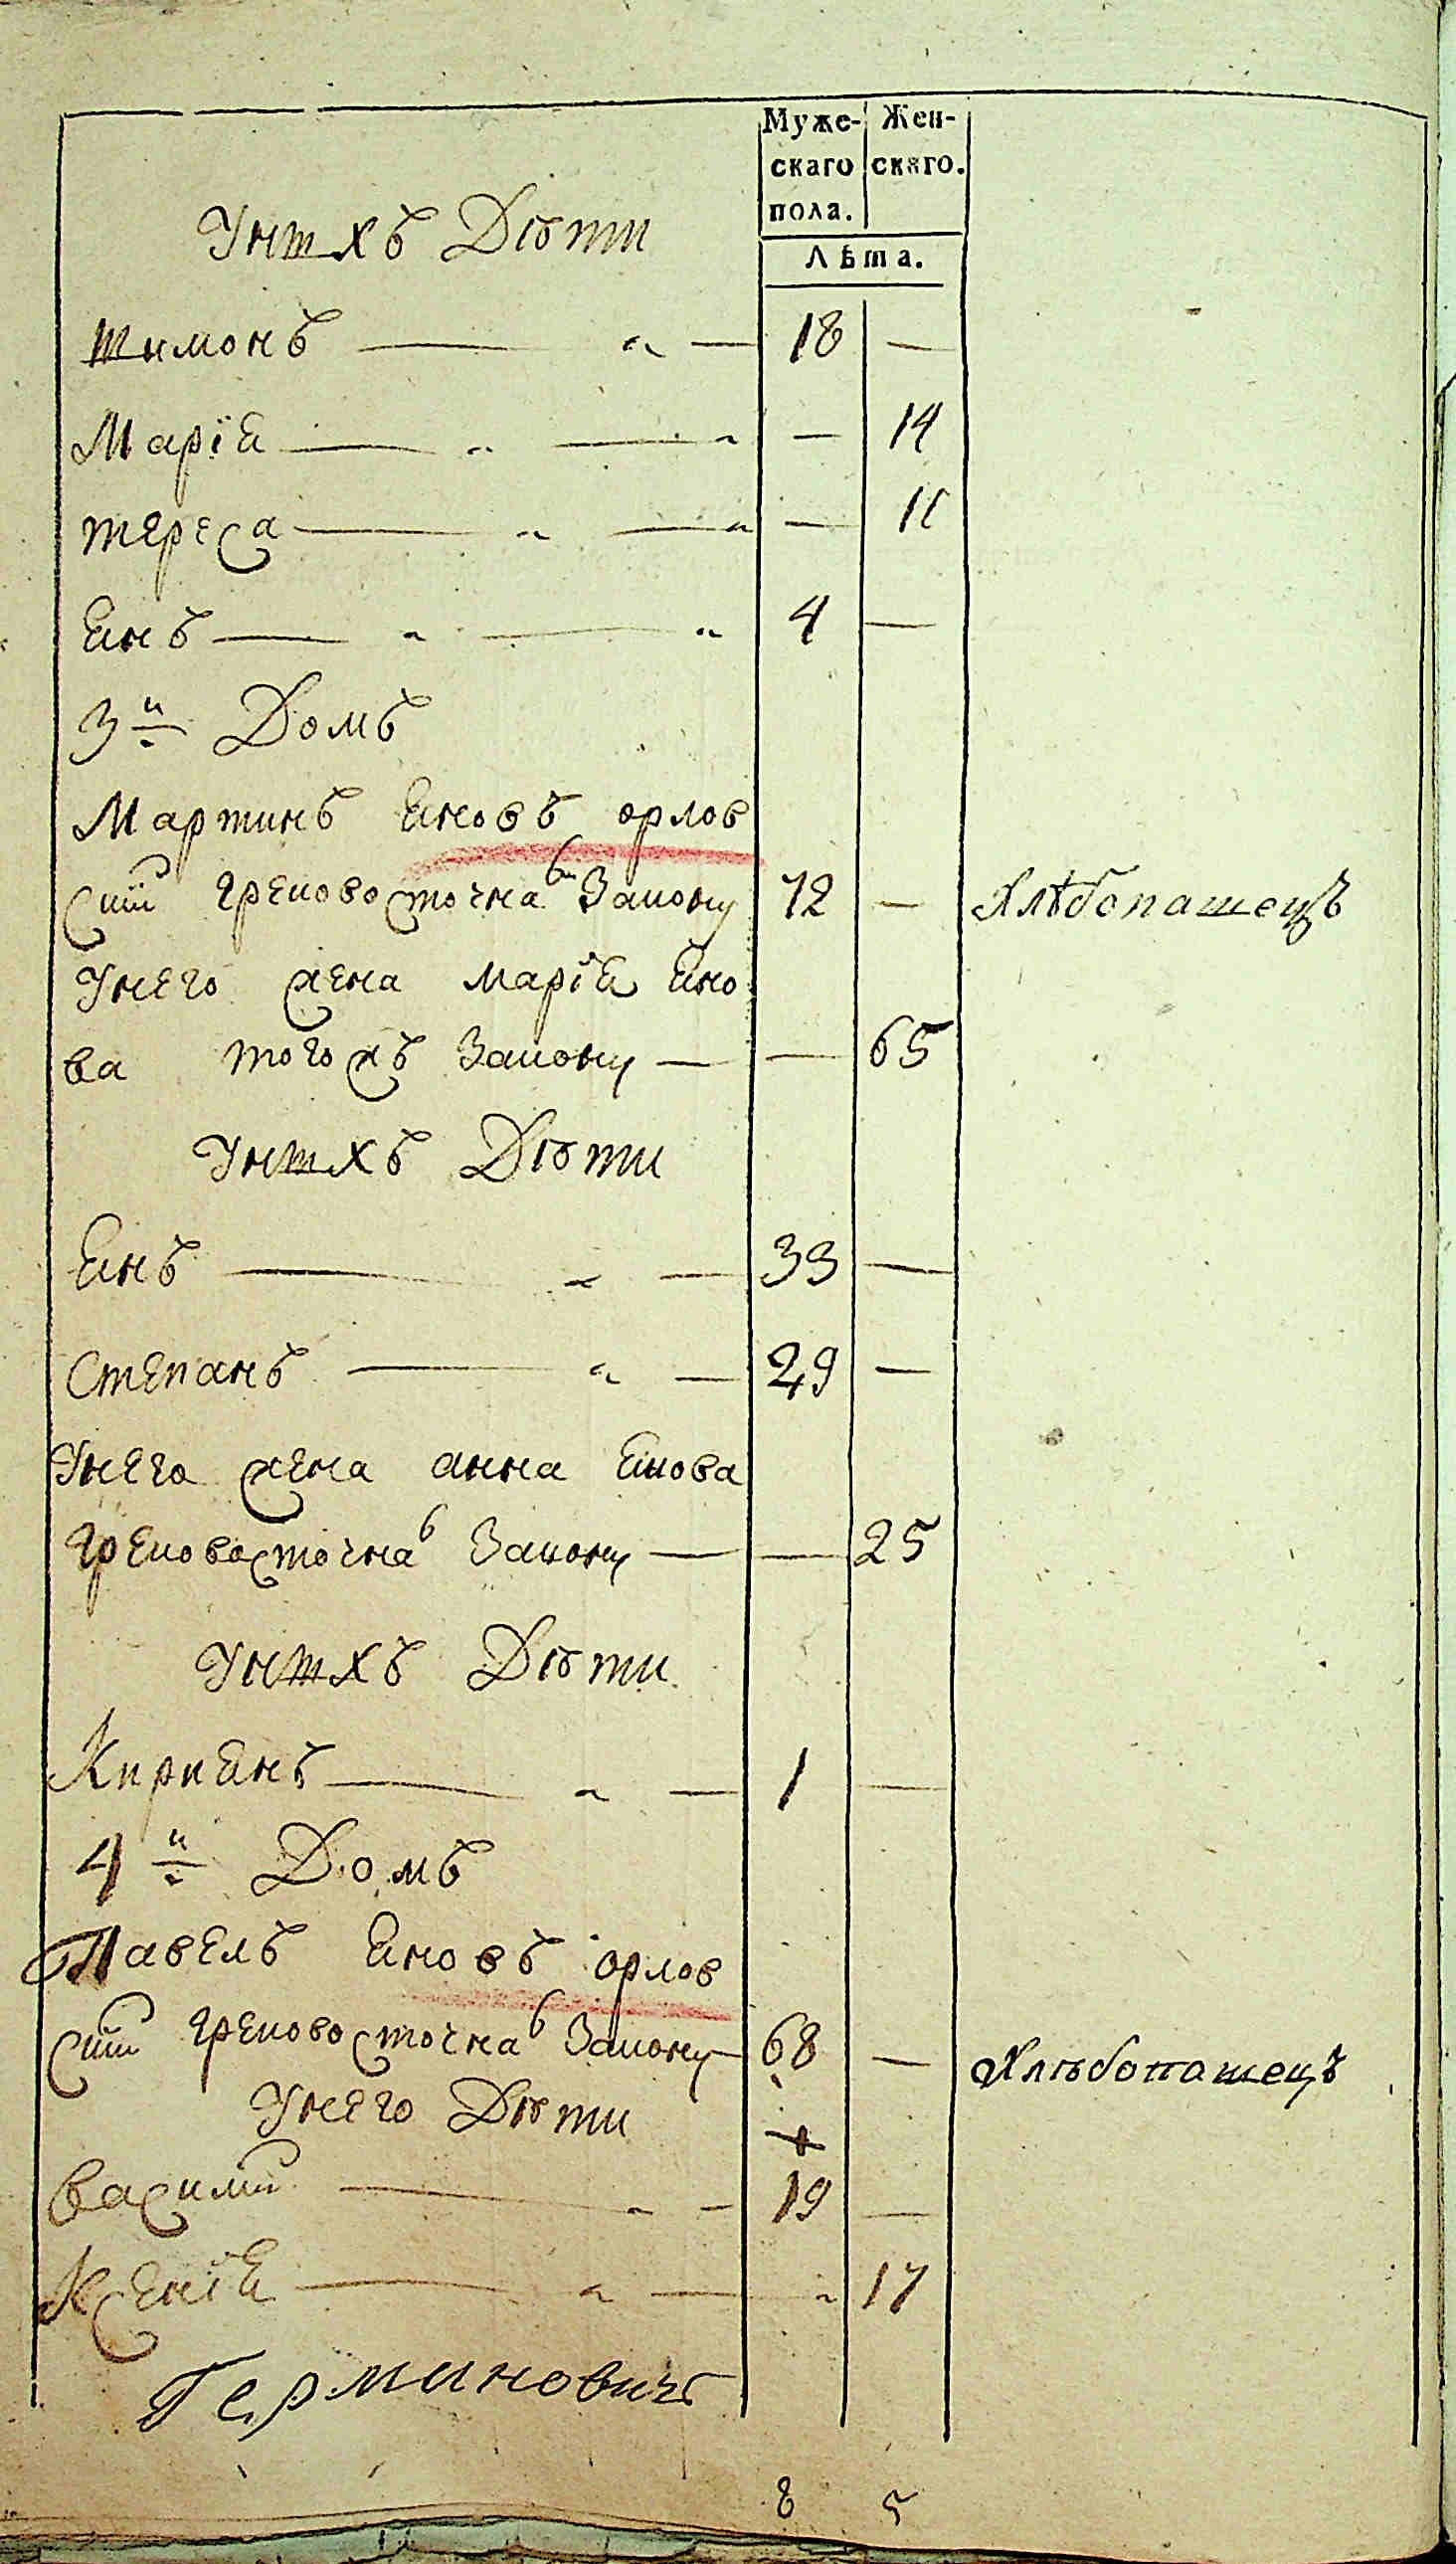 Муже- Жен-
скаго скаго.
пола.
Лѣта.
Унихъ Дѣти
тимонъ — „ — 18 —
Марїя — „ — „ — 14
тереса — „ — „ — 11
Янъ — „ — „ 4 —
3й Домъ
Мартинъ Яновъ орлов
скїй грековосточнаг Закону 72 — Хлѣбопашецъ
Унего жена марїя Яно
ва того жъ Закону — — 65
Унихъ Дѣти
Янъ — „ — 33 —
Степанъ — „ — 29 —
Унего жена анна Янова
грековосточнаг Закону — — 25
Унихъ Дѣти
Кириянъ — „ — 1 —
4й Домъ
Павелъ Яновъ орлов
скїй грековосточнаг Закону 68 — Хлѣбопашецъ
Унего Дѣти
василий — „ — 19 —
Ксенїя — „ — „ 17
Герминовичъ
8 5